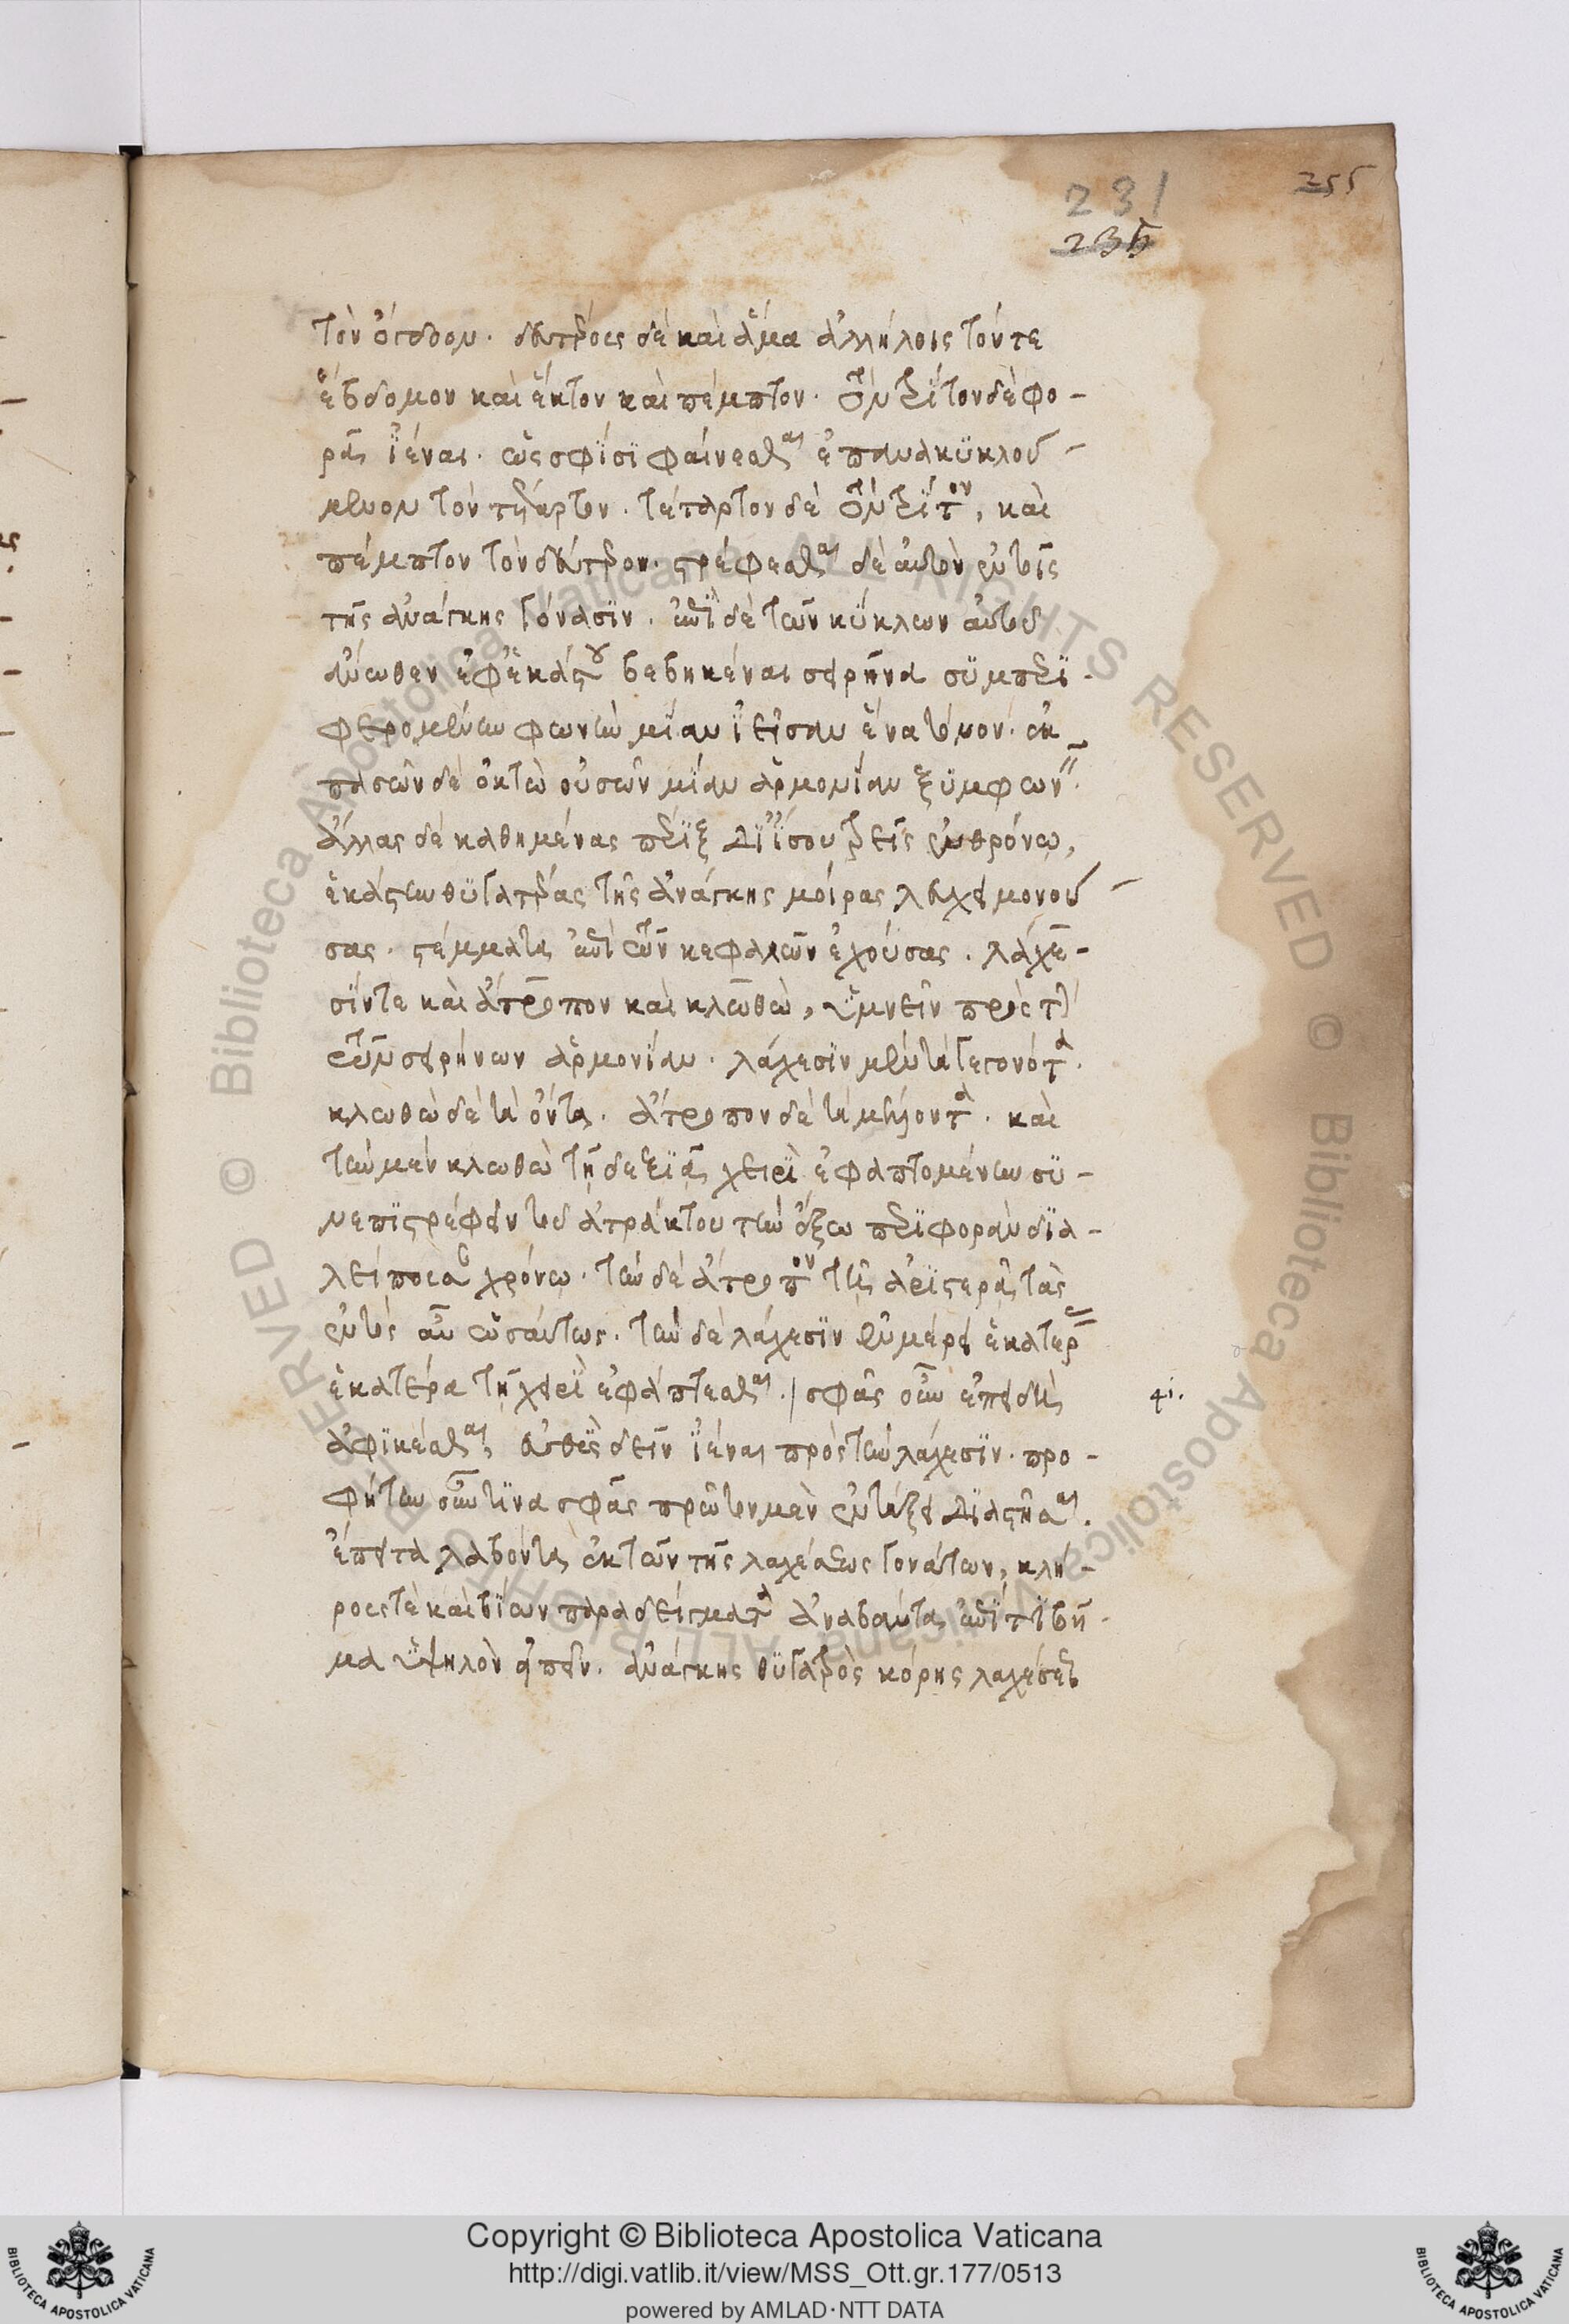 231
235
255
τὸν ὄγδοον. δευτέρους δὲ καὶ ἅμα ἀλλήλοις τόν τε
ἕβδομον καὶ ἕκτον καὶ πέμπτον. τὸν τρίτον δὲ φο-
ρᾷ ἰέναι. ὡς σφίσι φαίνεσθαι ἐπανακυκλού-
μενον τὸν τέταρτον. τέταρτον δὲ τὸν τρίτον, καὶ
πέμπτον τὸν δεύτερον. στρέφεσθαι δὲ αὐτὸν ἐν τοῖς
τῆς ἀνάγκης γόνασιν. ἐπὶ δὲ τῶν κύκλων αὐτοῦ
ἄνωθεν ἐφ' ἑκάστου βεβηκέναι σειρῆνα συμπερι-
φερομένην φωνὴν μίαν ἱεῖσαν ἕνα τόνον. ἐκ
πασῶν δὲ ὀκτὼ οὐσῶν μίαν ἁρμονίαν ξυμφων
ἄλλας δὲ καθημένας πέριξ δι' ἴσου τρεῖς ἐν θρόνῳ,
ἑκάστην θυγατέρας τῆς ἀνάγκης μοίρας λευχειμονού-
σας. στέμματα ἐπὶ τῶν κεφαλῶν ἐχούσας. λάχε-
σίν τε καὶ ἄτροπον καὶ κλωθὼ, ὑμνεῖν πρὸς τὴν
τῶν σειρήνων ἁρμονίαν. λάχεσιν μὲν τὰ γεγονότα.
κλωθὼ δὲ τὰ ὄντα. ἄτροπον δὲ τὰ μέλλοντα. καὶ
τὴν μὲν κλωθὼ τῇ δεξιᾷ χειρὶ ἐφαπτομένην συ-
νεπιστρέφειν τοῦ ἀτράκτου τὴν ἔξω περιφορὰν δια-
λείπουσαν χρόνῳ. τὴν δὲ ἄτροπον τῇ ἀριστερᾷ τὰς
ἐντὸς αὖ ὡσαύτως. τὴν δὲ λάχεσιν ἐν μέρει ἑκατέρας
ἑκατέρα τῇ χειρὶ ἐφάπτεσθαι. / σφᾶς οὖν ἐπειδὴ
ἀφικέσθαι, εὐθὺς δεῖν ἰέναι πρὸς τὴν λάχεσιν. προ-
φήτην οὖν τινα σφᾶς πρῶτον μὲν ἐν τάξει διαστῆσαι.
ἔπειτα λαβόντα ἐκ τῶν τῆς λαχέσεως γονάτων, κλή-
ρους τὲ καὶ βίων παραδείγματα ἀναβάντα ἐπί τι βῆ-
μα ὑψηλὸν εἰπεῖν. ἀνάγκης θυγατρὸς κόρης λαχέσεως
Copyright © Biblioteca Apostolica Vaticana
http://digi.vatlib.it/view/MSS_Ott.gr.177/0513
powered by AMLAD·NTT DATA